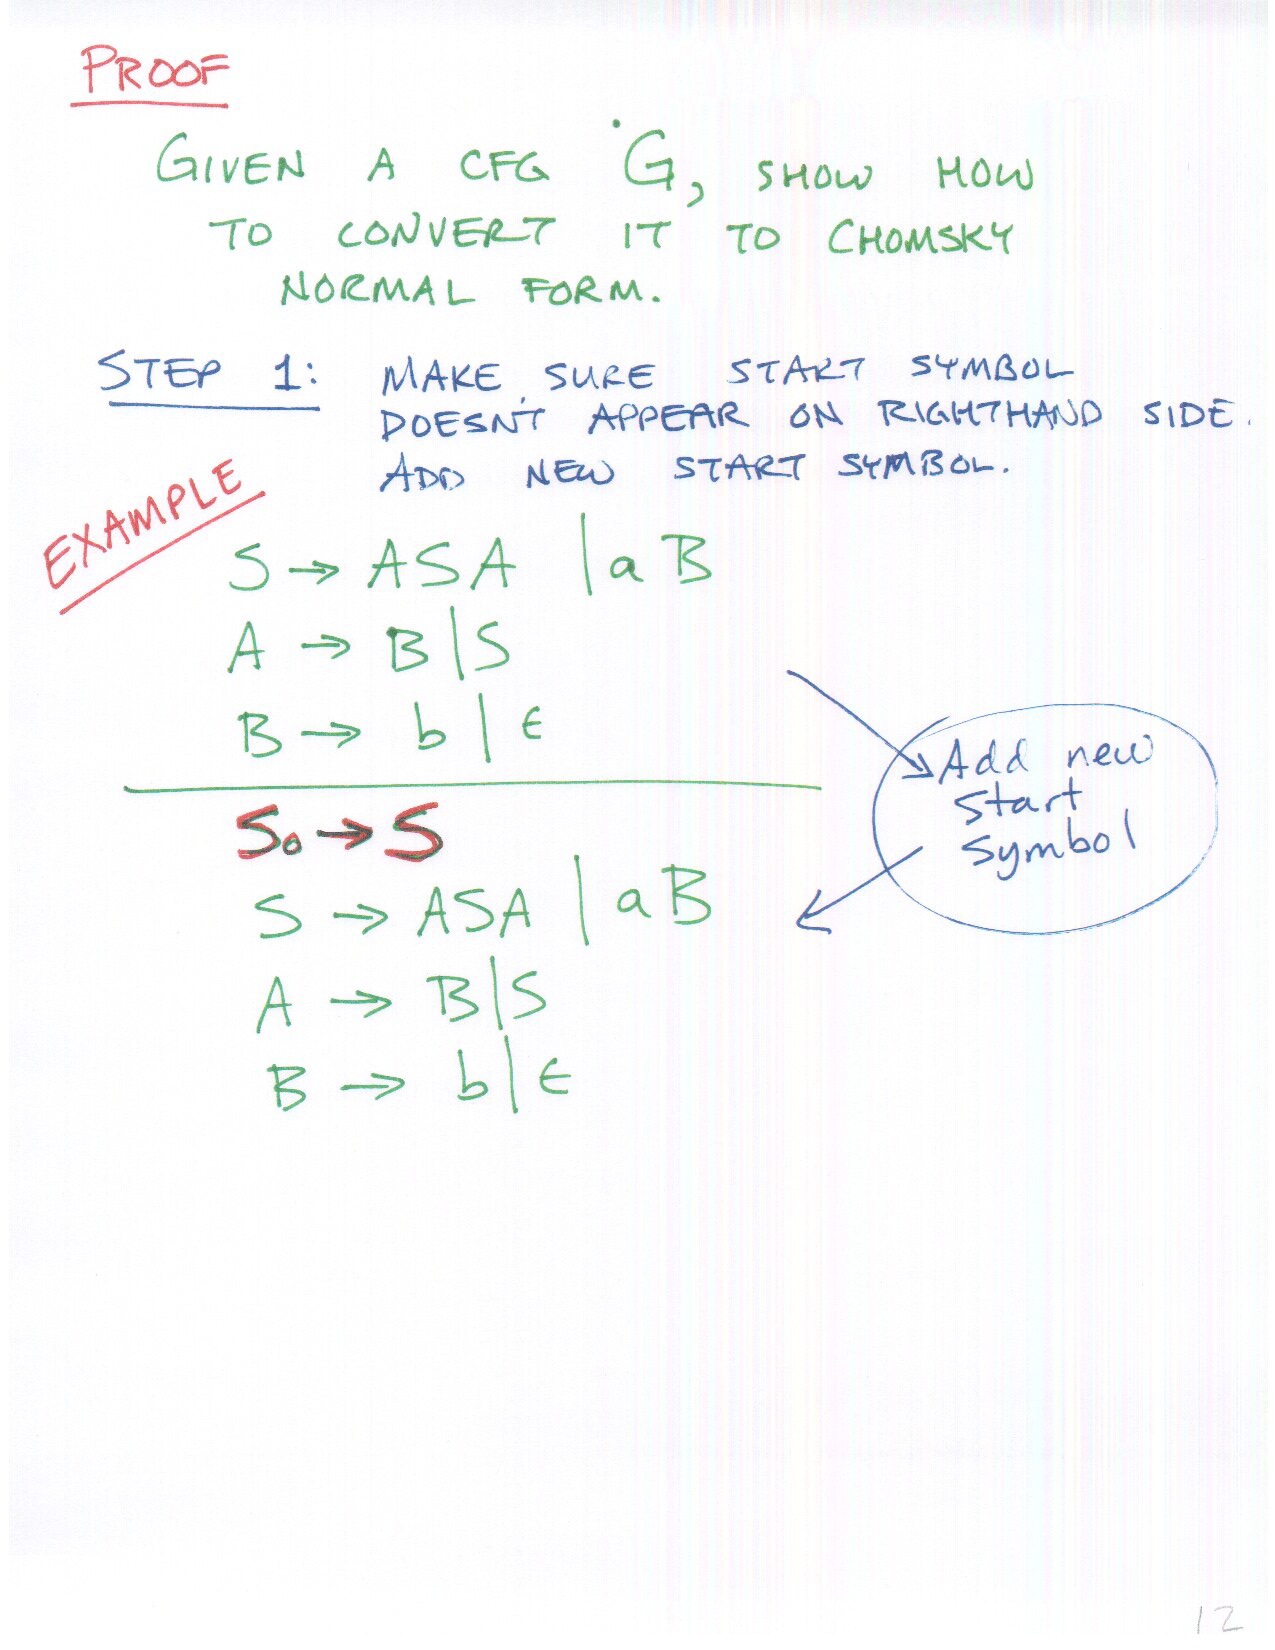 PROOF
GIVEN A CFG G, SHOW HOW
TO CONVERT IT TO CHOMSKY
NORMAL FORM.
STEP 1: MAKE SURE START SYMBOL
DOESN'T APPEAR ON RIGHTHAND SIDE.
ADD NEW START SYMBOL.
EXAMPLE
S → ASA | aB
A → B | S
B → b | ϵ
Add new
start
symbol
S₀ → S
S → ASA | aB
A → B | S
B → b | ϵ
12